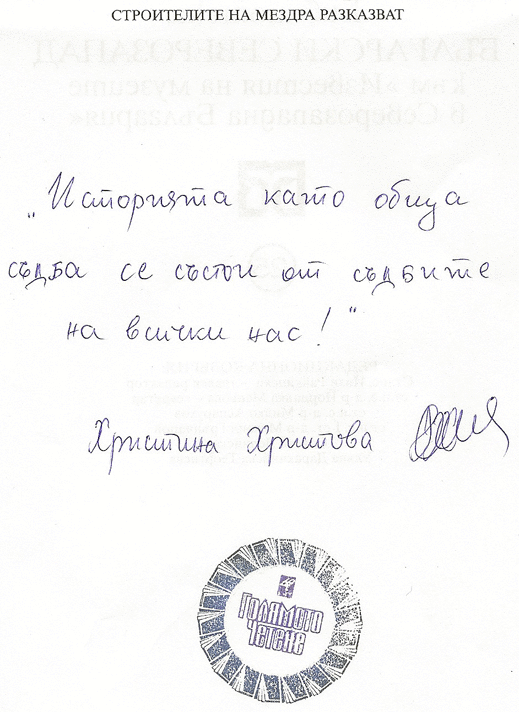 СТРОИТЕЛИТЕ НА МЕЗДРА РАЗКАЗВАТ
„Историята като обща
съдба се състои от съдбите
на всички нас!“
Християна Христова
ГОЛЯМОТО
ЧЕТЕНЕ